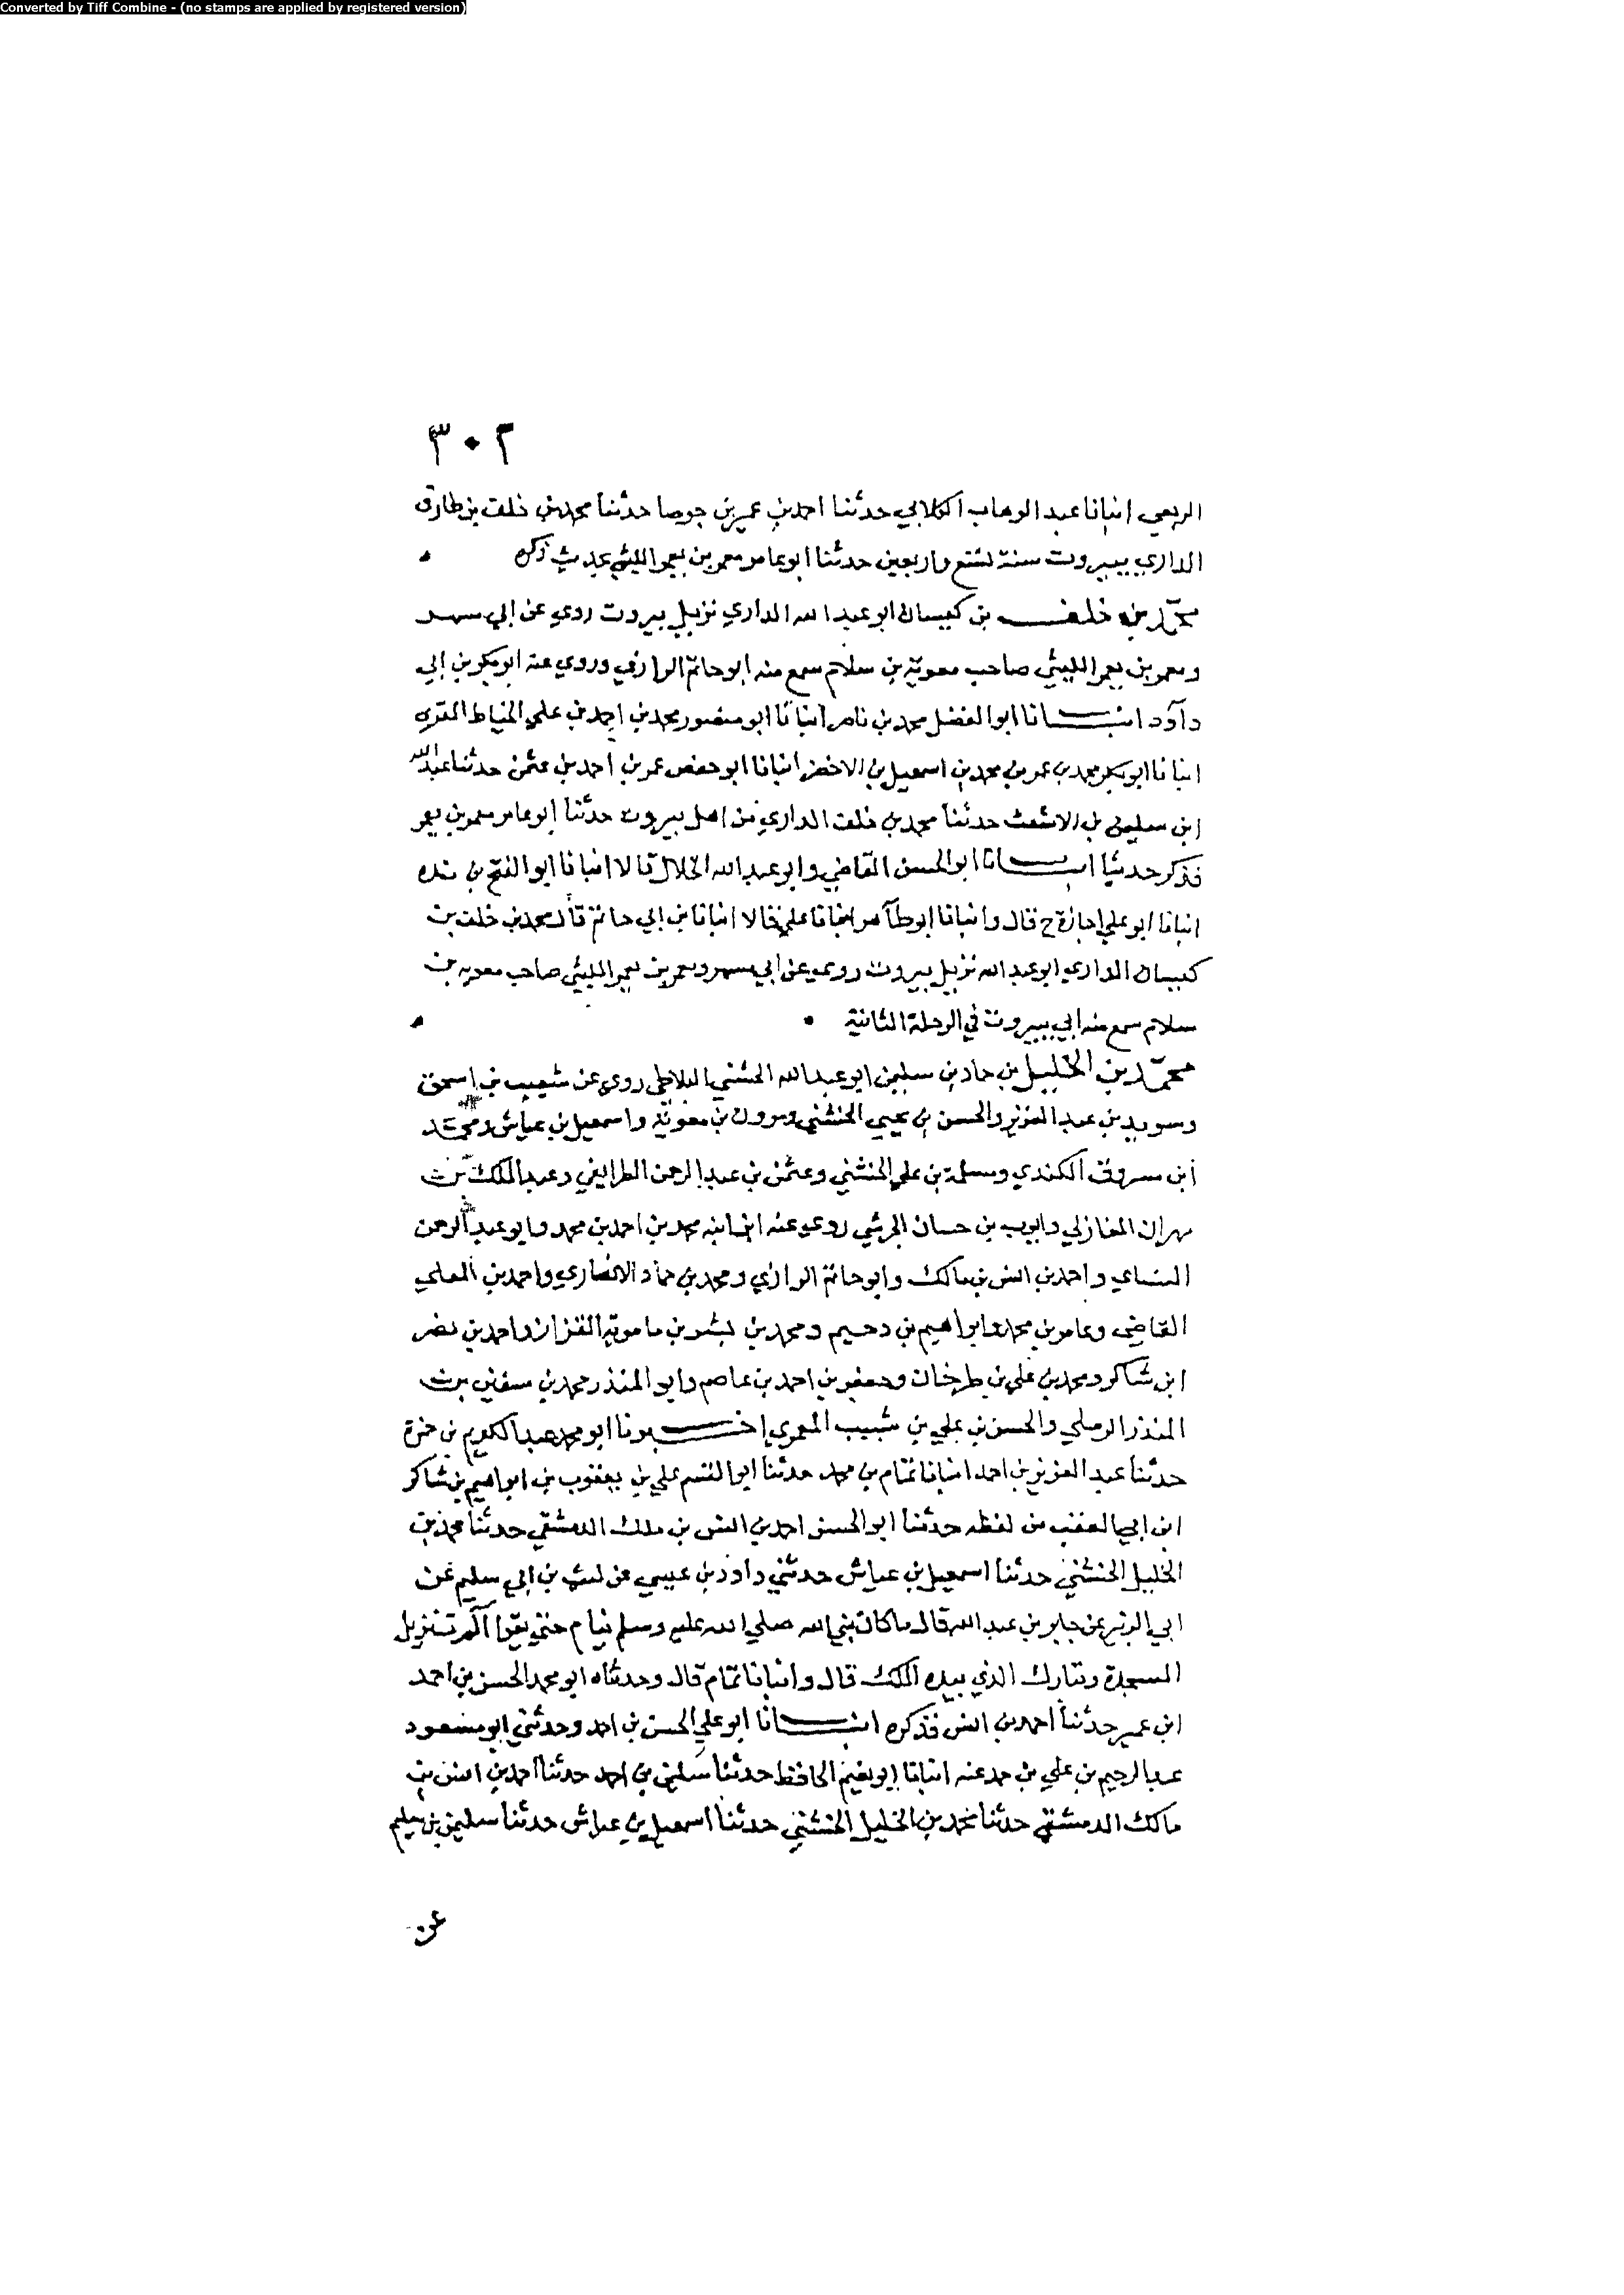 Converted by Tiff Combine - (no stamps are applied by registered version)
٣٠٢
الربعي انبانا عبد الوهاب الكلابي حدثنا احمد بن عمير بن جوصا حدثنا محمد بن خلف بن طارق
الداري ببيروت سنة تسع واربعين حدثنا ابو عامر معمر بن يعمر الليثي بحديث ذكره
محمد بن خلف بن كيسان ابو عبد الله الداري نزيل بيروت روي عن ابي مسهر
ومعمر بن يعمر الليثي صاحب معوية بن سلام سمع منه ابو حاتم الرازي وروي عنه ابو بكر بن ابي
داود انبانا ابو الفضل محمد بن ناصر انبانا ابو منصور محمد بن احمد بن علي الخياط المقري
انبانا ابو بكر محمد بن عمر بن محمد بن اسمعيل بن الاخضر انبانا ابو حفص عمر بن احمد بن عثمن حدثنا عبد الله
ابن سليمن بن الاشعث حدثنا محمد بن خلف الداري من اهل بيروت حدثنا ابو عامر معمر بن يعمر
فذكر حديثا انبانا ابو الحسن القاضي وابو عبد الله الخلال قالا انبانا ابو القسم بن منده
انبانا ابو علي اجازة ح قال وانبانا ابو طاهر انبانا علي قالا انبانا بن ابي حاتم قال محمد بن خلف بن
كيسان الداري ابو عبد الله نزيل بيروت روي عن ابي مسهر ومعمر بن يعمر الليثي صاحب معويه بن
سلام سمع منه ابي ببيروت في الرحلة الثانية
محمد بن الخليل بن حماد بن سليمن ابو عبد الله الخشني البلاطي روي عن شعيب بن اسحق
وسويد بن عبد العزيز والحسن بن يحيي الخشني ومروان بن معوية واسمعيل بن عياش ومحمد
ابن مسروق الكندي ومسلمة بن علي الخشني وعثمن بن عبد الرحمن الطرايفي وعبد الملك بن
مهران المغازلي وايوب بن حسان الجرشي روي عنه ابن ابنه محمد بن احمد بن محمد وابو عبد الرحمن
النساي واحمد بن انس بن مالك وابو حاتم الرازي ومحمد بن حماد الانصاري واحمد بن المعلي
القاضي وعامر بن محمد وابراهيم بن دحيم ومحمد بن بشر بن مامويه القزاز واحمد بن نصر
ابن شاكر ومحمد بن علي بن طرخان وجعفر بن احمد بن عاصم وابو المنذر محمد بن سفين بن
المنذر الرملي والحسن بن علي بن شبيب المعمري اخبرنا ابو محمد عبد الكريم بن حمزة
حدثنا عبد العزيز بن احمد انبانا تمام بن محمد حدثنا ابو القسم علي بن يعقوب بن ابراهيم بن شاكر
ابن ابي العقب من لفظه حدثنا ابو الحسن احمد بن انس بن ملك الدمشقي حدثنا محمد بن
الخليل الخشني حدثنا اسمعيل بن عياش حدثني داود بن عيسي عن ليث بن ابي سليم عن
ابي الزبير عن جابر بن عبد الله قال ما كان نبي الله صلي الله عليه وسلم ينام حتي يقرا الم تنزيل
السجدة وتبارك الذي بيده الملك قال وانبانا تمام قال وحدثناه ابو محمد الحسن بن احمد
ابن عمير حدثنا احمد بن انس فذكره انبانا ابو علي الحسن بن احمد وحدثني ابو مسعود
عبد الرحيم بن علي بن حمد عنه انبانا ابو نعيم الحافظ حدثنا سليمن بن احمد حدثنا احمد بن انس بن
مالك الدمشقي حدثنا محمد بن الخليل الخشني حدثنا اسمعيل بن عياش حدثنا سليمن بن سليم
عن